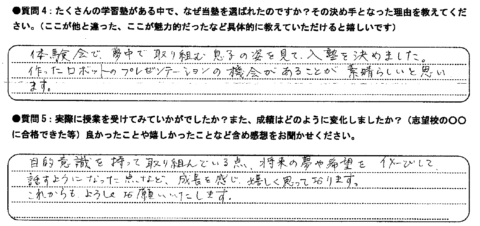 ●質問4：たくさんの学習塾がある中で、なぜ当塾を選ばれたのですか？その決め手となった理由を教えてくだ
さい。（ここが他と違った、ここが魅力的だったなど具体的に教えていただけると嬉しいです）
体験会で、夢中で取り組む息子の姿を見て、入塾を決めました。
作ったロボットのプレゼンテーションの機会があることが素晴らしいと思い
ます。
●質問5：実際に授業を受けてみていかがでしたか？また、成績はどのように変化しましたか？（志望校の〇〇
に合格できた等）良かったことや嬉しかったことなど含め感想をお聞かせください。
目的意識を持って取り組んでいる点、将来の夢や希望を
話すようになった点など、成長を感じ、嬉しく思っております。
これからもよろしくお願いいたします。